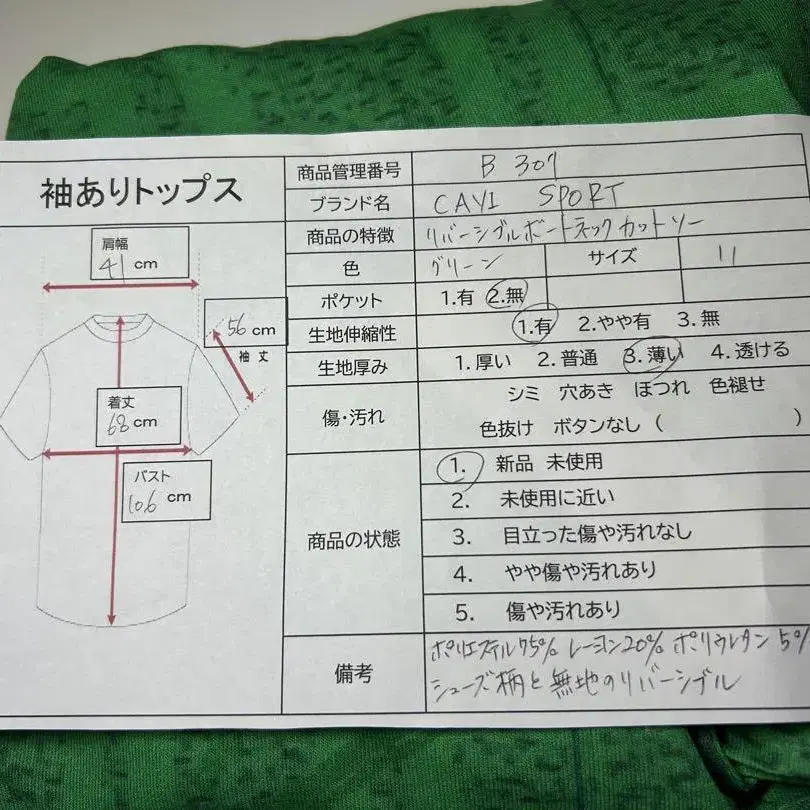 袖ありトップス
肩幅
41 cm
56 cm
袖丈
着丈
68 cm
バスト
106 cm
商品管理番号 B 307
ブランド名 CAVI SPORT
商品の特徴 リバーシブルボートネックカットソー
色 グリーン サイズ 11
ポケット 1.有 2.無
生地伸縮性 1.有 2.やや有 3.無
生地厚み 1.厚い 2.普通 3.薄い 4.透ける
傷・汚れ シミ 穴あき ほつれ 色褪せ
色抜け ボタンなし ( )
商品の状態
1. 新品 未使用
2. 未使用に近い
3. 目立った傷や汚れなし
4. やや傷や汚れあり
5. 傷や汚れあり
備考 ポリエステル75% レーヨン20% ポリウレタン5%
シューズ柄と無地のリバーシブル